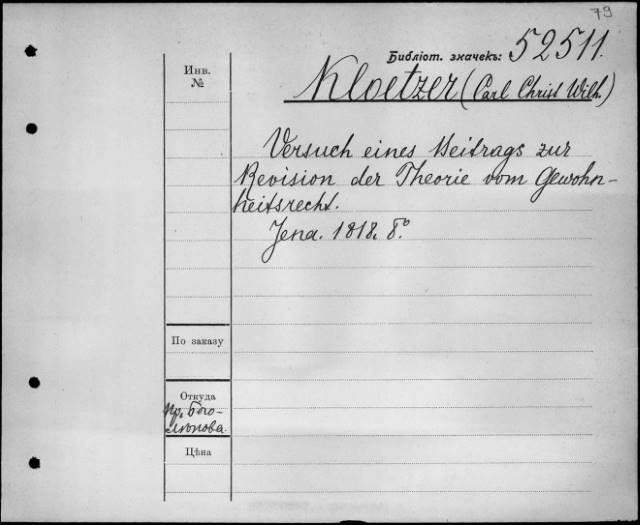 79
Библіот. значекъ: 52511.
Инв.
№
Kloetzer (Carl Christ Wilh.)
Versuch eines Beitrags zur
Revision der Theorie vom Gewohn-
heitsrecht.
Jena. 1818. 8º.
По заказу
Откуда
пр. Бого-
лѣпова.
Цѣна